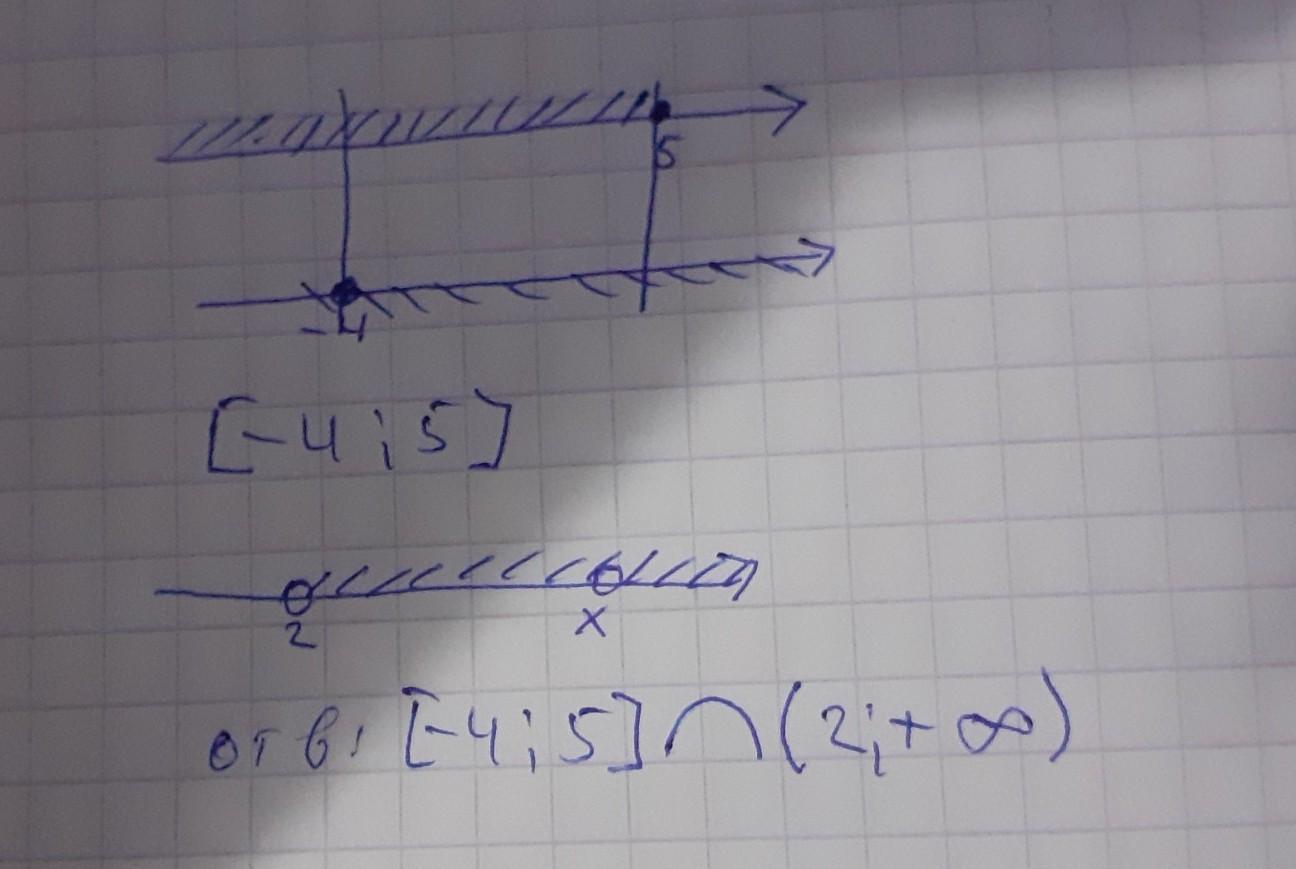 5
-4
[-4; 5]
2 x
отв: [-4; 5] ∩ (2; + ∞)